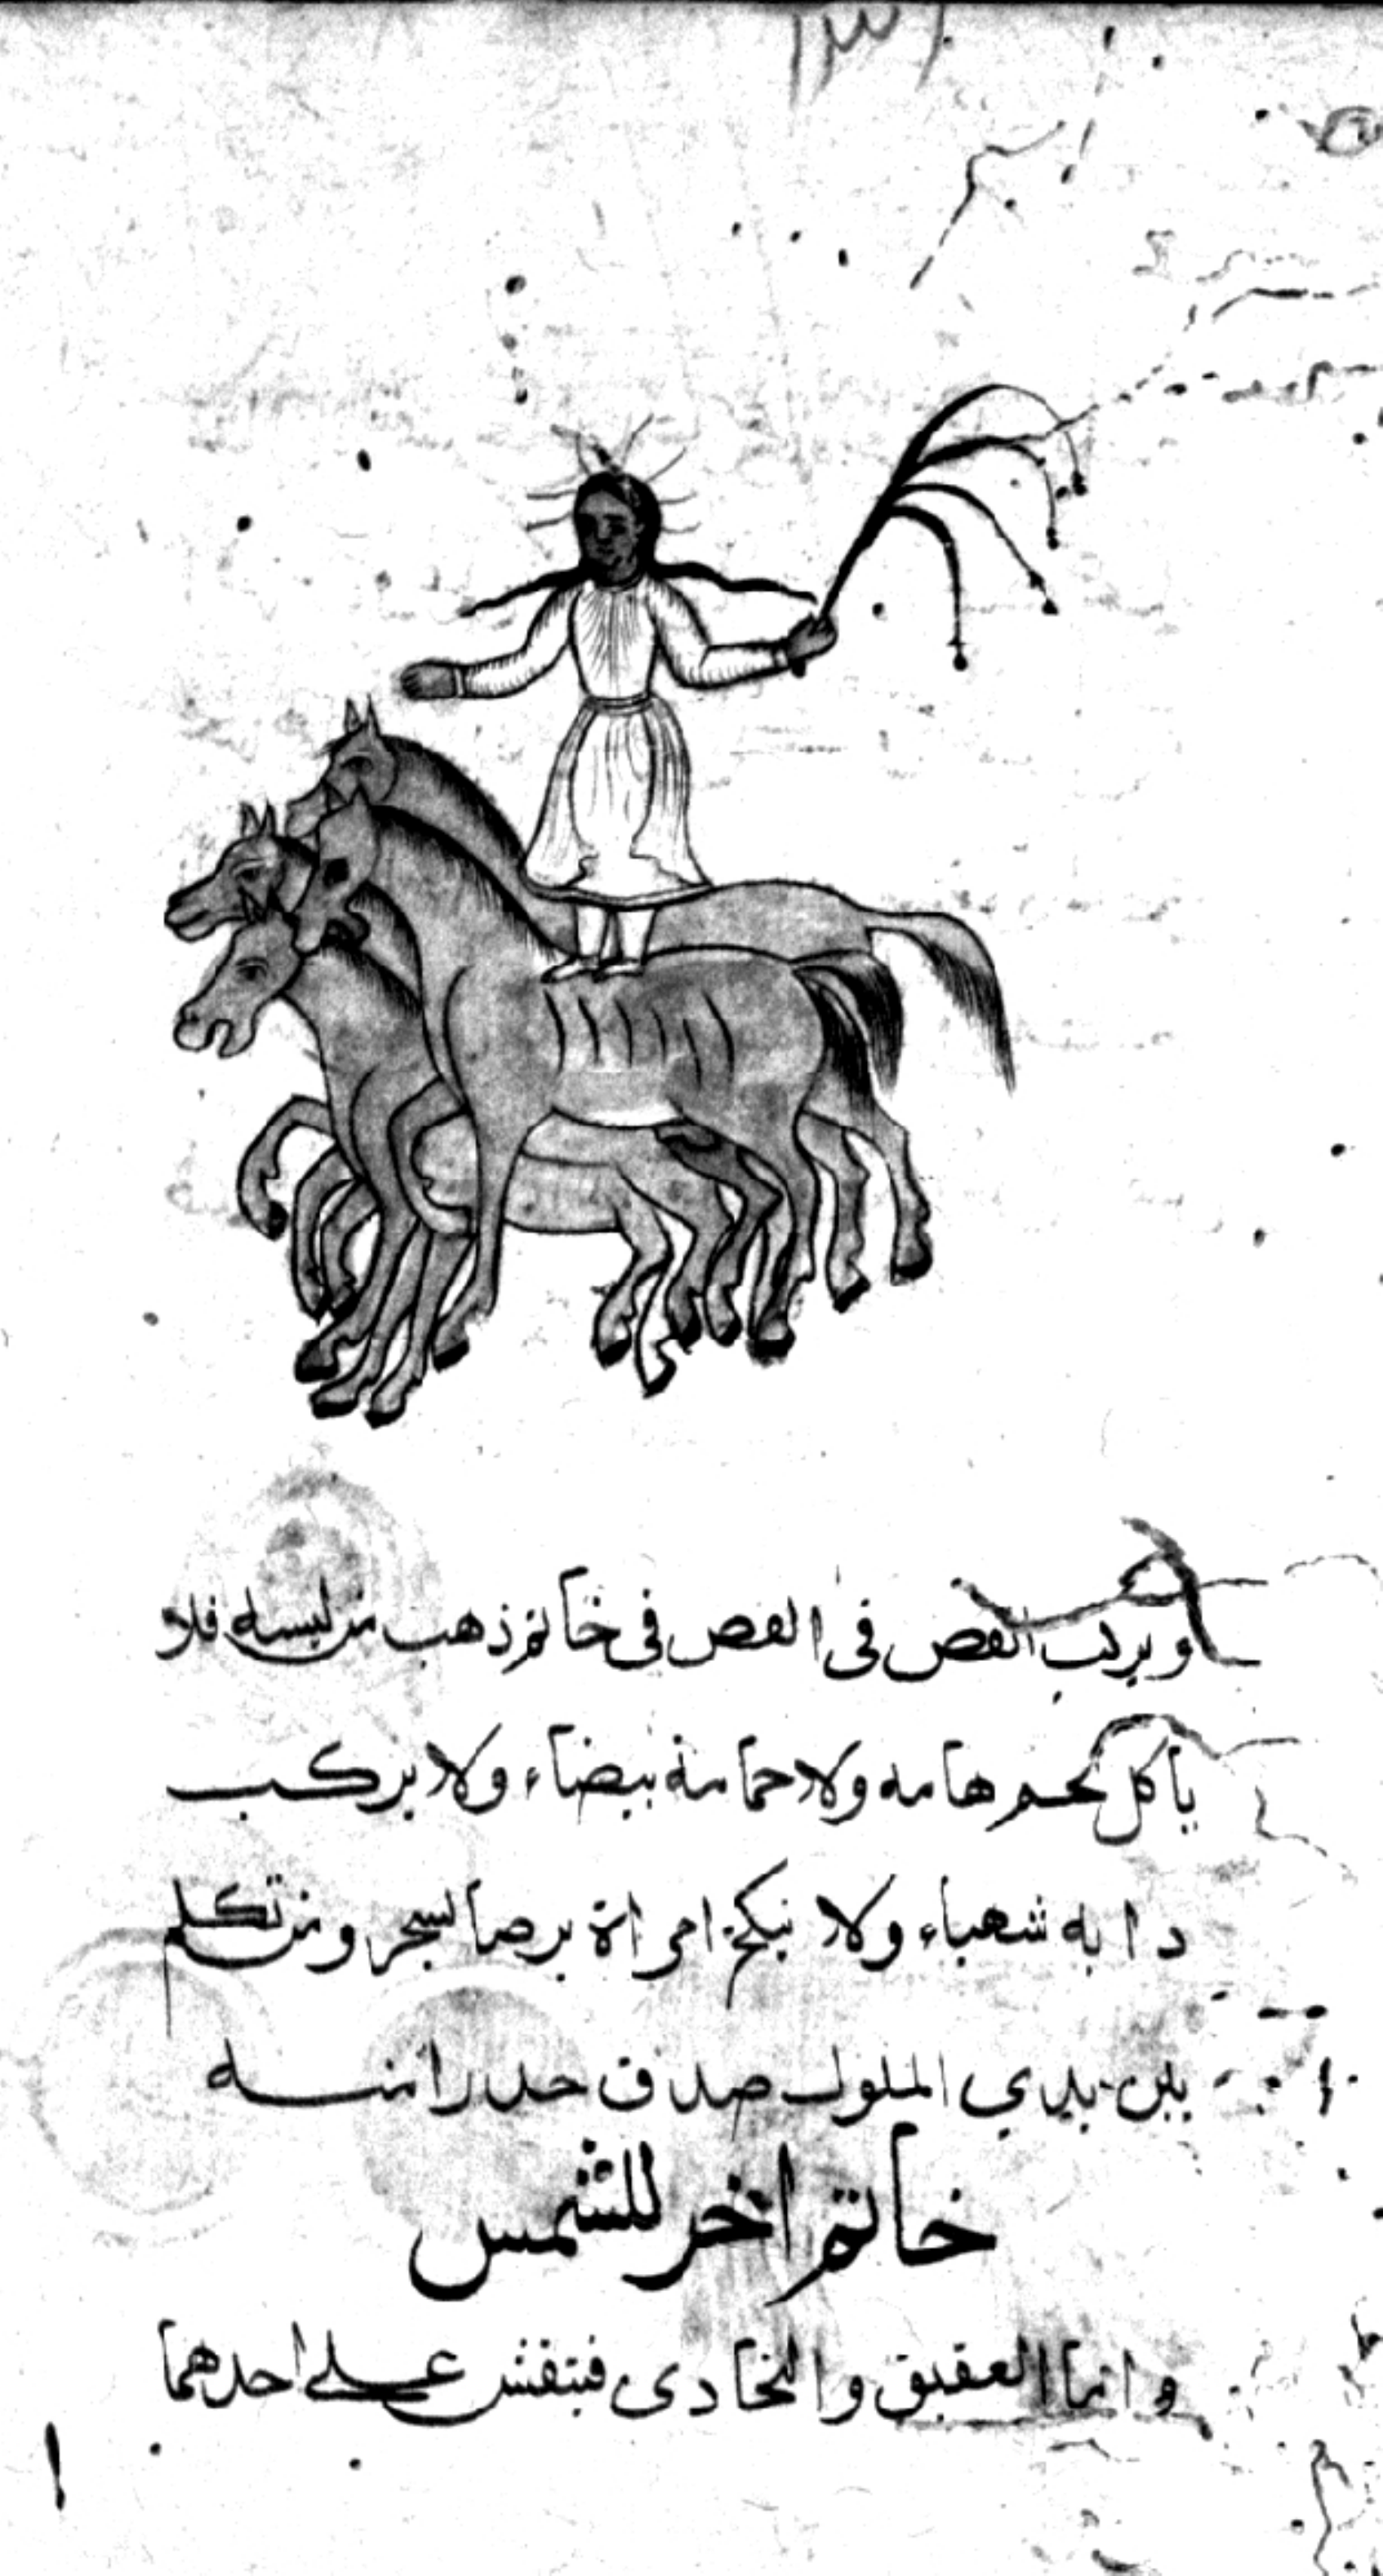 ويركب الفص في الفص في خاتم ذهب من لبسه فلا
ياكل لحم هامه ولا حمامة بيضاء ولا يركب
دابه شهباء ولا ينكح امراة برصا ومن تكلم
بين يدي الملوك صدق
خاتم اخر للشمس
واما العقيق والنحادى فينقش على احدهما